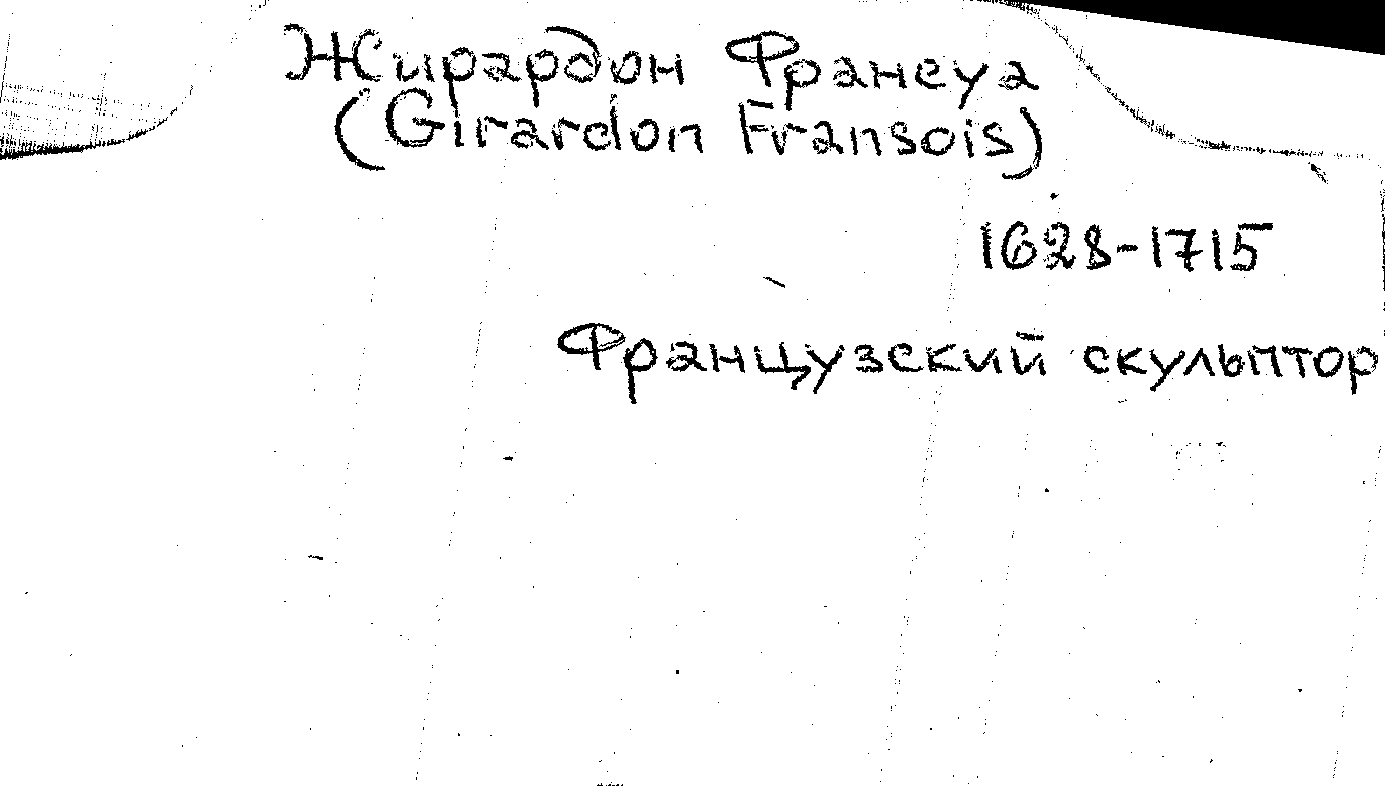 Жирардон Франсуа
(Girardon Fransois)
1628-1715
Французский скульптор